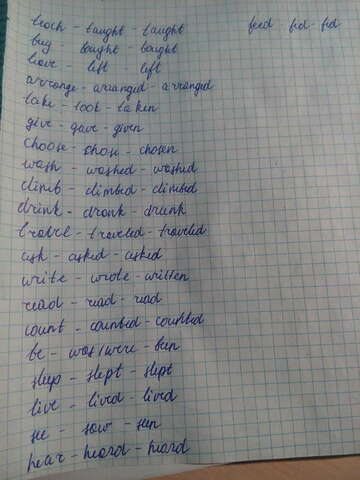 teach - taught - taught feed fed - fed
buy - bought - bought
leave - left - left
arrange - arranged - arranged
take - took - taken
give - gave - given
choose - chose - chosen
wash - washed - washed
climb - climbed - climbed
drink - drank - drunk
travel - traveled - traveled
ask - asked - asked
write - wrote - written
read - read - read
count - counted - counted
be - was/were - been
sleep - slept - slept
live - lived - lived
see - saw - seen
hear - heard - heard